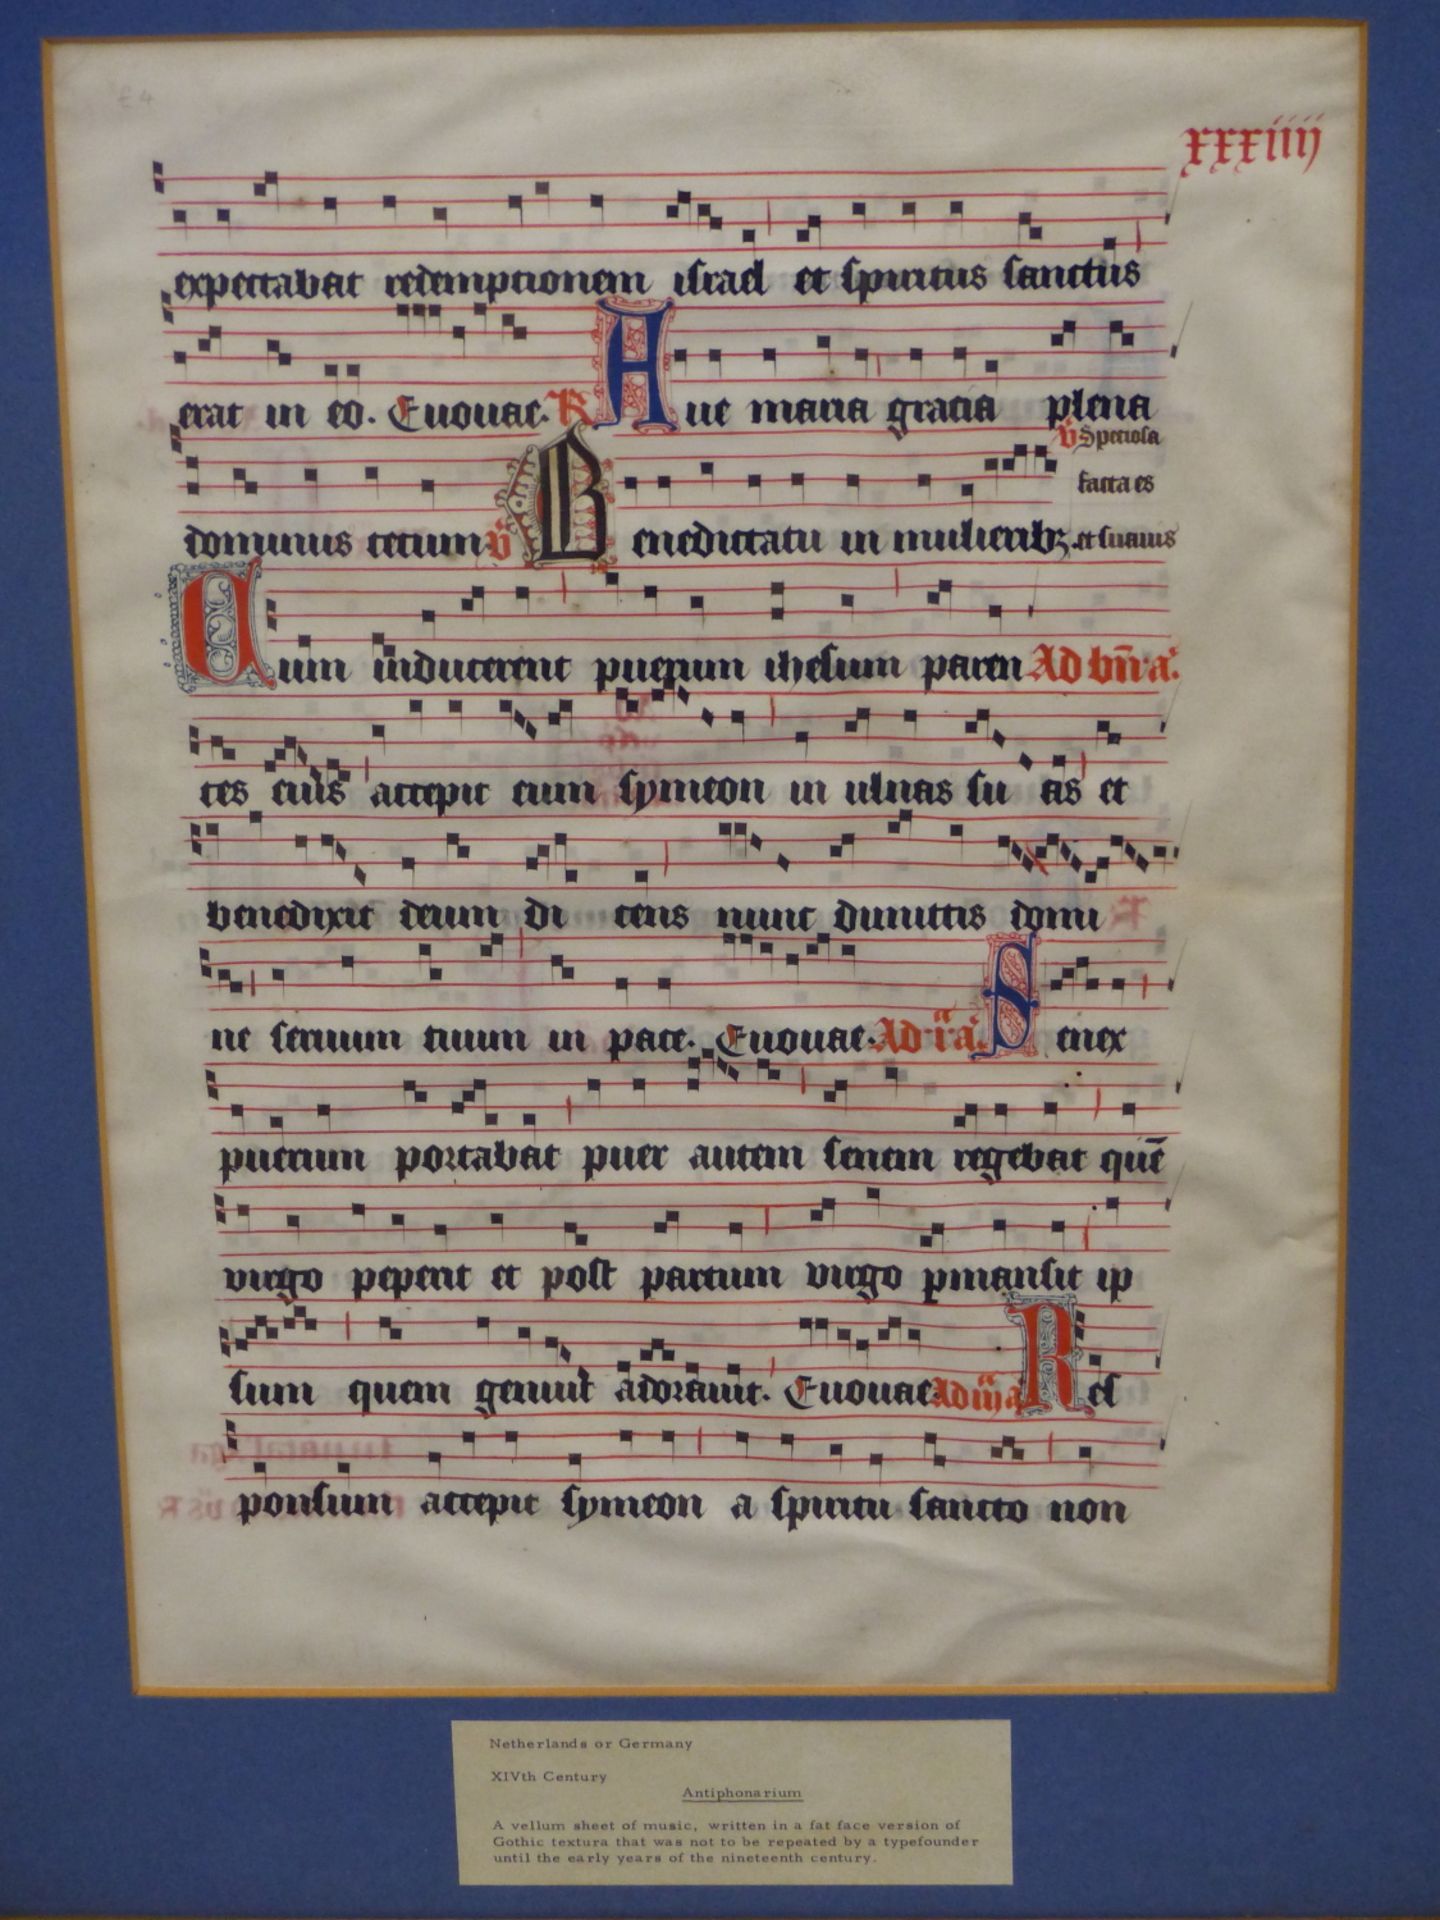 £4
xxxiiij
expectabat redemptionem israel et spiritus sanctus
erat in eo. Euouae. R Aue maria gracia plena
V Speciosa
facta es
dominus tecum V Benedictatu in mulieribꝫ et suauis
Cum inducerent puerum ihesum paren Ad bn̄ a.
tes eius accepit eum symeon in ulnas su as et
benedixit deum di cens nunc dimittis domi
ne seruum tuum in pace. Euouae. Ad i a Senex
puerum portabat puer autem senem regebat quē
virgo peperit et post partum virgo pmansit ip
sum quem genuit adorauit. Euouae Ad iij a Res
ponsum accepit symeon a spiritu sancto non
Netherlands or Germany
XIVth Century
Antiphonarium
A vellum sheet of music, written in a fat face version of
Gothic textura that was not to be repeated by a typefounder
until the early years of the nineteenth century.